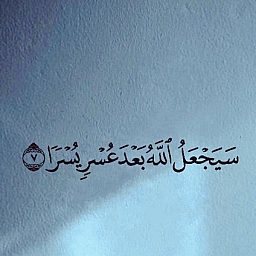 سَيَجْعَلُ ٱللَّهُ بَعْدَ عُسْرٍ يُسْرًا ٧